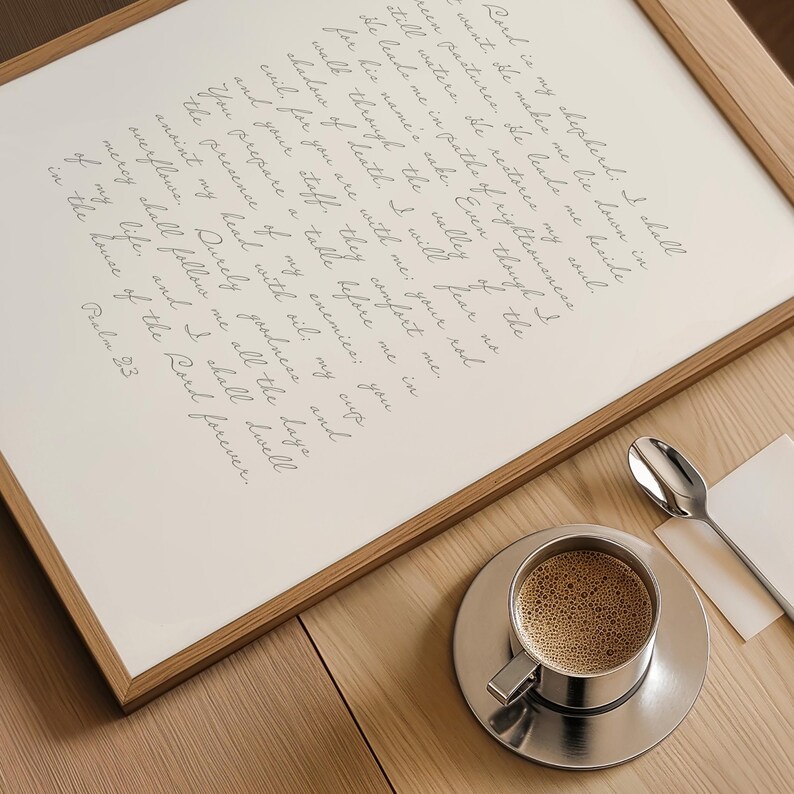 Lord is my shepherd; I shall
t want. He makes me lie down in
reen pastures. He leads me beside
still waters. He restores my soul.
He leads me in paths of righteousness
for his name's sake. Even though I
walk through the valley of the
shadow of death, I will fear no
evil for you are with me; your rod
and your staff, they comfort me.
You prepare a table before me in
the presence of my enemies; you
anoint my head with oil; my cup
overflows. Surely goodness and
mercy shall follow me all the days
of my life, and I shall dwell
in the house of the Lord forever.
Psalm 23